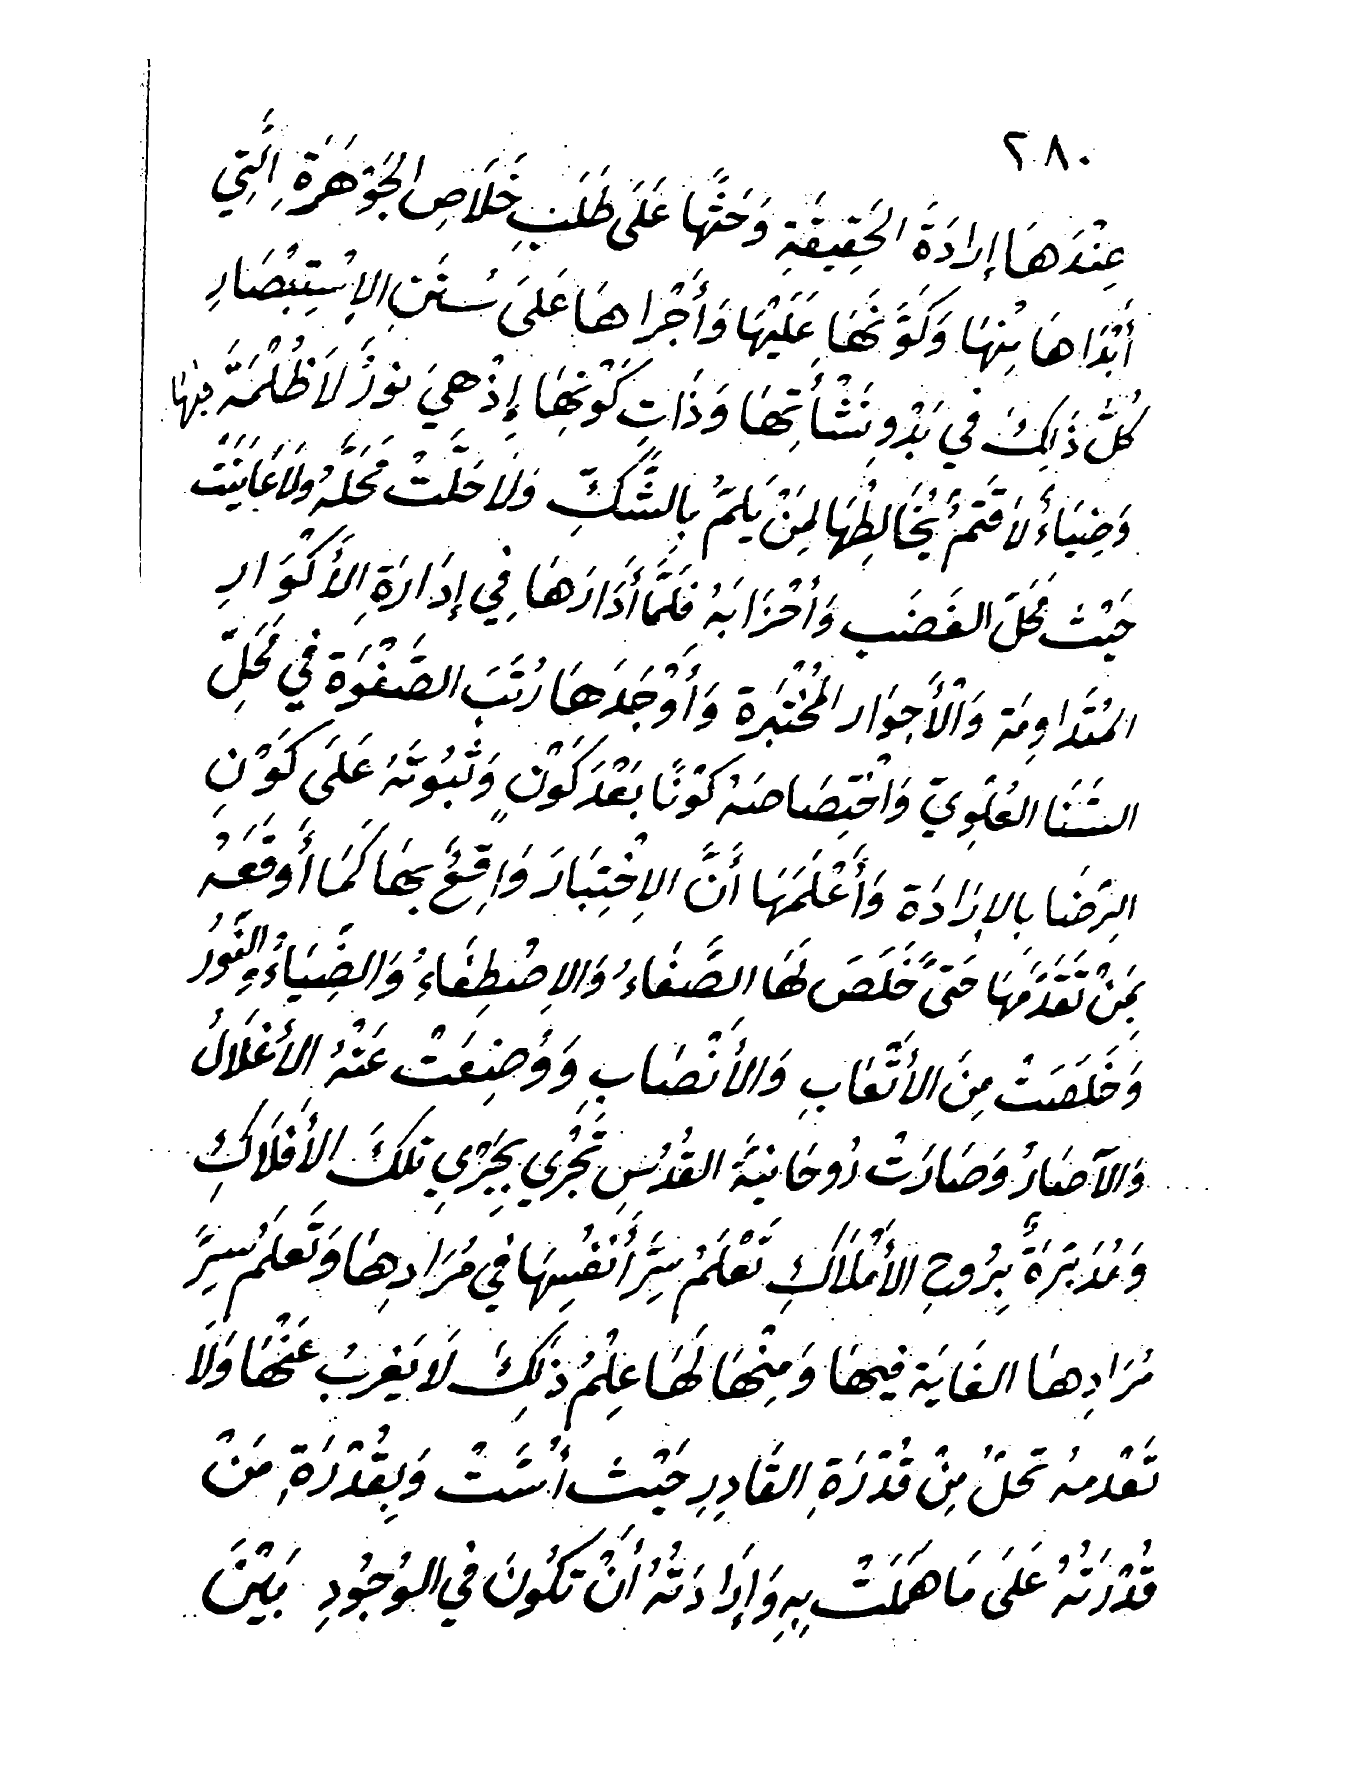 ٢٨٠
عِنْدَهَا إِرَادَةَ الحَقِيقَةِ وَحَثَّهَا عَلَى طَلَبِ خَلَاصِ الجَوْهَرَةِ الَّتِي
أَبْدَاهَا مِنْهَا وَكَوَّنَهَا عَلَيْهَا وَأَجْرَاهَا عَلَىَ سُنَنِ الإِسْتِبْصَارِ
كُلُّ ذَلِكَ في بَدْوِ نَشْأَتِهَا وَذَاتِ كَوْنِهَا إِذْ هيَ نورٌ لَا ظُلْمَةَ فيها
وَضِيَاءٌ لَا قَتَمٌ يُخَالِطُهَا لِمَنْ يَلُمَّ بِالشَّكِّ وَلَا حَلَّتْ مَحَلَّهُ ولَا عَايَنَتْ
حَيْثُ مَحَلَّ الغَضَبِ وَأَحْزَابَهُ فَلَمَّا أَدَارَهَا فِي إِدَارَةِ الأَكْوَارِ
المُتَدَاوِمَة وَالْأَجِوَار المُخْتَبَرَة وَأَوْجَدَهَا رُتَبَ الصَّفْوَة في مَحَلِّ
السَّنَا العُلْوِيّ وَاخْتِصَاصَهُ كَوْنًا بَعْدَ كَوْنٍ وَثُبُوتَهُ عَلَىَ كَوْنِ
الرِّضَا بالإرَادَة وَأَعْلَمَهَا أَنَّ الإِخْتِبَارَ وَاقِعٌ بهَا كَمَا أَوقَعَهُ
بِمَنْ تَقَدَّمَهَا حَتَّى خَلَصَ لَهَا الصَّفَاءُ وَالإِصْطِفَاءُ وَالضِّيَاءُ وَالنُّورُ
وَخَلَصَتْ مِنَ الأَتْعَابِ وَالأَنْصَابِ وَوُضِعَتْ عَنْهُ الأَغْلَالُ
وَالآصَارُ وَصَارَتْ رُوحَانِيَّةَ القُدُسِ تَجْرِي بِجَرْيِ تلكَ الأَفْلَاكِ
وَمُدَبَّرَةٌ بِرُوحِ الأَمْلَاكِ تَعْلَمُ سِرَّ أَنْفُسِهَا في مُرَادِهَا وَتَعلَمُ سِرَّ
مُرَادِهَا الغَايَة فيهَا وَمِنْهَا لَهَا عِلْمُ ذَلِكَ لَا يَغربُ عَنْهَا وَلَا
تَعْدمهُ تحَلّ مِنْ قُدْرَةِ القَادِرِ حَيْثُ أُسَّتْ وَبِقُدْرَةِ مَنْ
قُدْرَتهُ عَلَى مَا هَمَلَتْ بِهِ وَإِرَادَتهُ أَنْ تَكُونَ في الوُجُودِ بَيْنَ